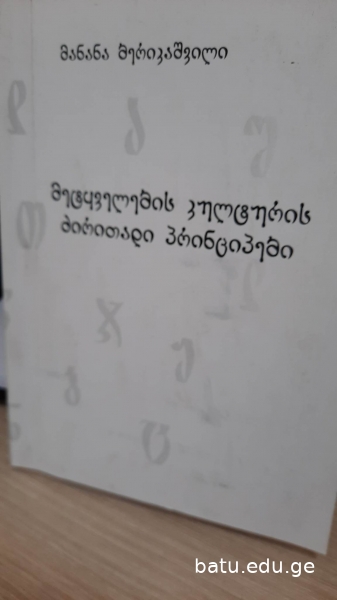 მანანა მერიკაშვილი
მეტყველების კულტურის
ძირითადი პრინციპები
batu.edu.ge